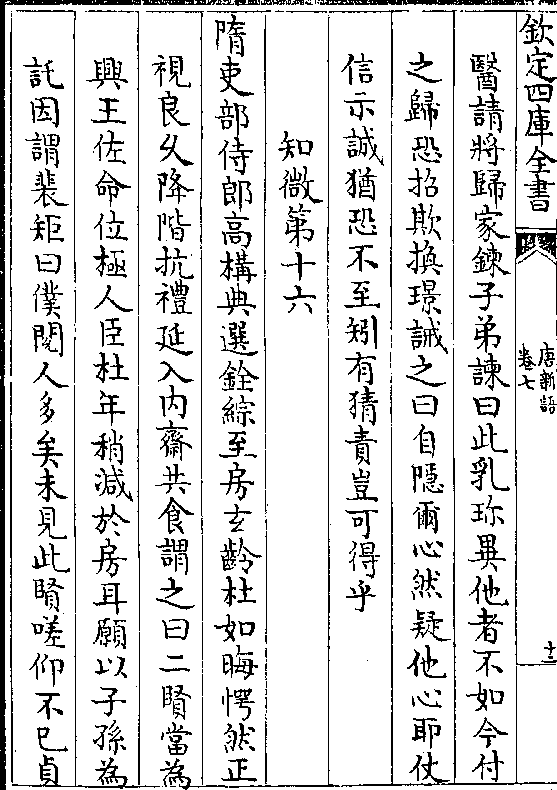 欽定四庫全書
唐新語
卷七
十三
醫請將歸家鍊子弟諫曰此乳珎異他者不如今付
之歸恐招欺換璟誡之曰自隱爾心然疑他心耶仗
信示誠猶恐不至矧有猜責豈可得乎
知微第十六
隋吏部侍郎高構典選銓綜至房玄齡杜如晦愕然正
視良久降階抗禮延入内齋共食謂之曰二賢當為
興王佐命位極人臣杜年稍減於房耳願以子孫為
託因謂裴矩曰僕閱人多矣未見此賢嗟仰不已貞